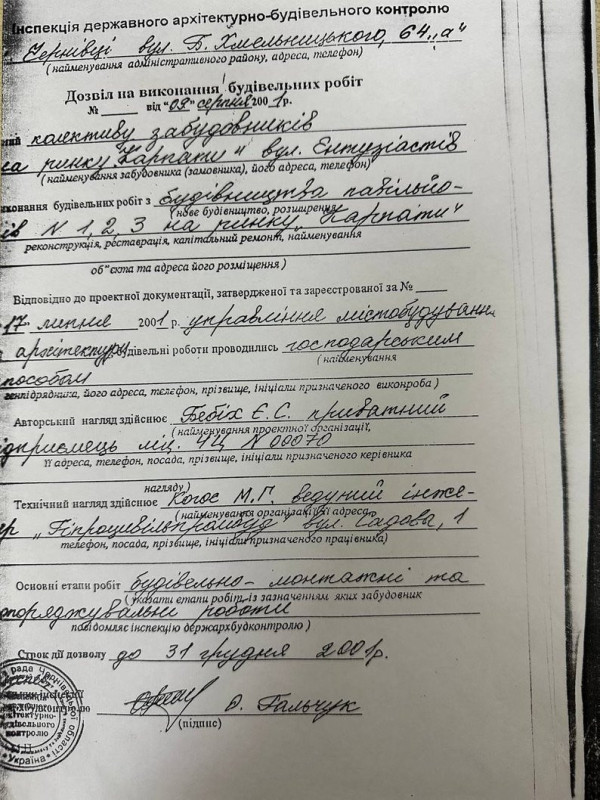 Інспекція державного архітектурно-будівельного контролю
Чернівці вул. Б. Хмельницького, 64 „а"
(найменування адміністративного району, адреса, телефон)
Дозвіл на виконання будівельних робіт
№ ______ від "09" серпня 2001 р.
ений колективу забудовників
на ринку „Карпати" вул. Ентузіастів
(найменування забудовника (замовника), його адреса, телефон)
иконання будівельних робіт з будівництва павільйо-
(нове будівництво, розширення
ів N 1, 2, 3 на ринку „Карпати"
реконструкція, реставрація, капітальний ремонт, найменування
об"єкта та адреса його розміщення )
Відповідно до проектної документації, затвердженої та зареєстрованої за № _____
17 липня 2001 р. управління містобудуванн
а архітектури будівельні роботи проводились господарським
( найменування
способом
генпідрядника, його адреса, телефон, прізвище, ініціали призначеного виконроба )
Авторський нагляд здійснює Бебіх Є.С. приватний
(найменування проектної організації,
ідприємець ліц. ЧЦ N 00070
її адреса, телефон, посада, прізвище, ініціали призначеного керівника
нагляду )
Технічний нагляд здійснює Когос М.П. ведучий інже-
(найменування організації, її адреса,
ер „Гіпроцивільпромбуд" вул. Садова, 1
телефон, посада, прізвище, ініціали призначеного працівника)
Основні етапи робіт будівельно-монтажні та
(указати етапи робіт, із зазначенням яких забудовник
опоряджувальні роботи
повідомляє інспекцію держархбудконтролю )
Строк дії дозволу до 31 грудня 2001р.
О. Гальчук
(підпис)
рада Чернівецької області
архітектурно-
будівельного
контролю
Україна